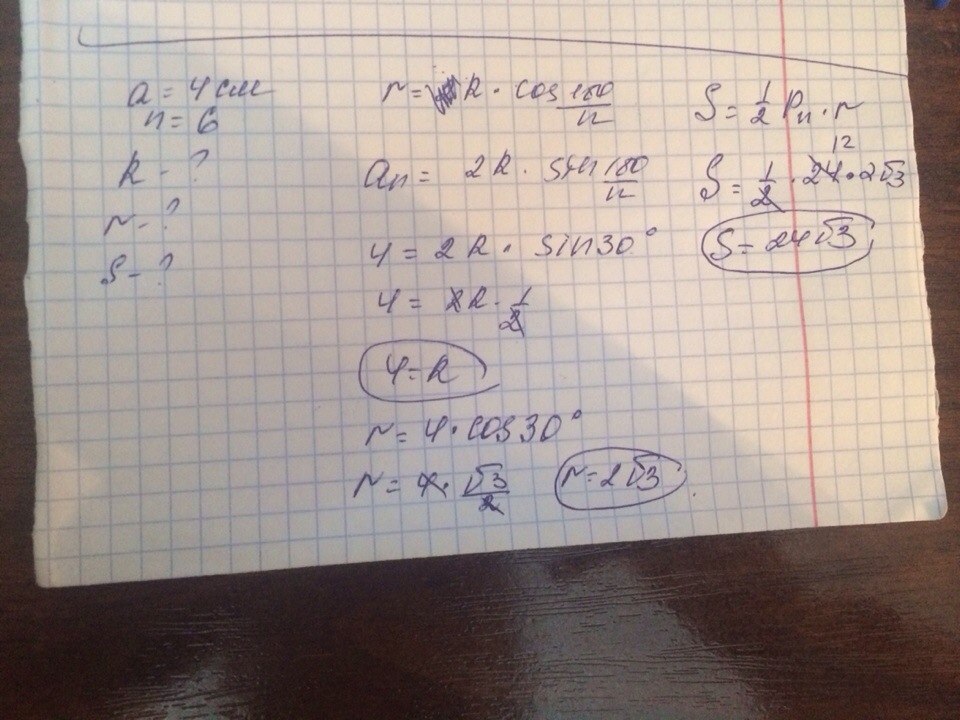 a = 4 см
n = 6
R - ?
r - ?
S - ?
r = R · cos 180/n
an = 2R · sin 180/n
4 = 2R · sin 30°
4 = 2R · 1/2
4 = R
r = 4 · cos 30°
r = 4 · √3/2
r = 2√3
S = 1/2 Pn · r
12
S = 1/2 · 24 · 2√3
S = 24√3